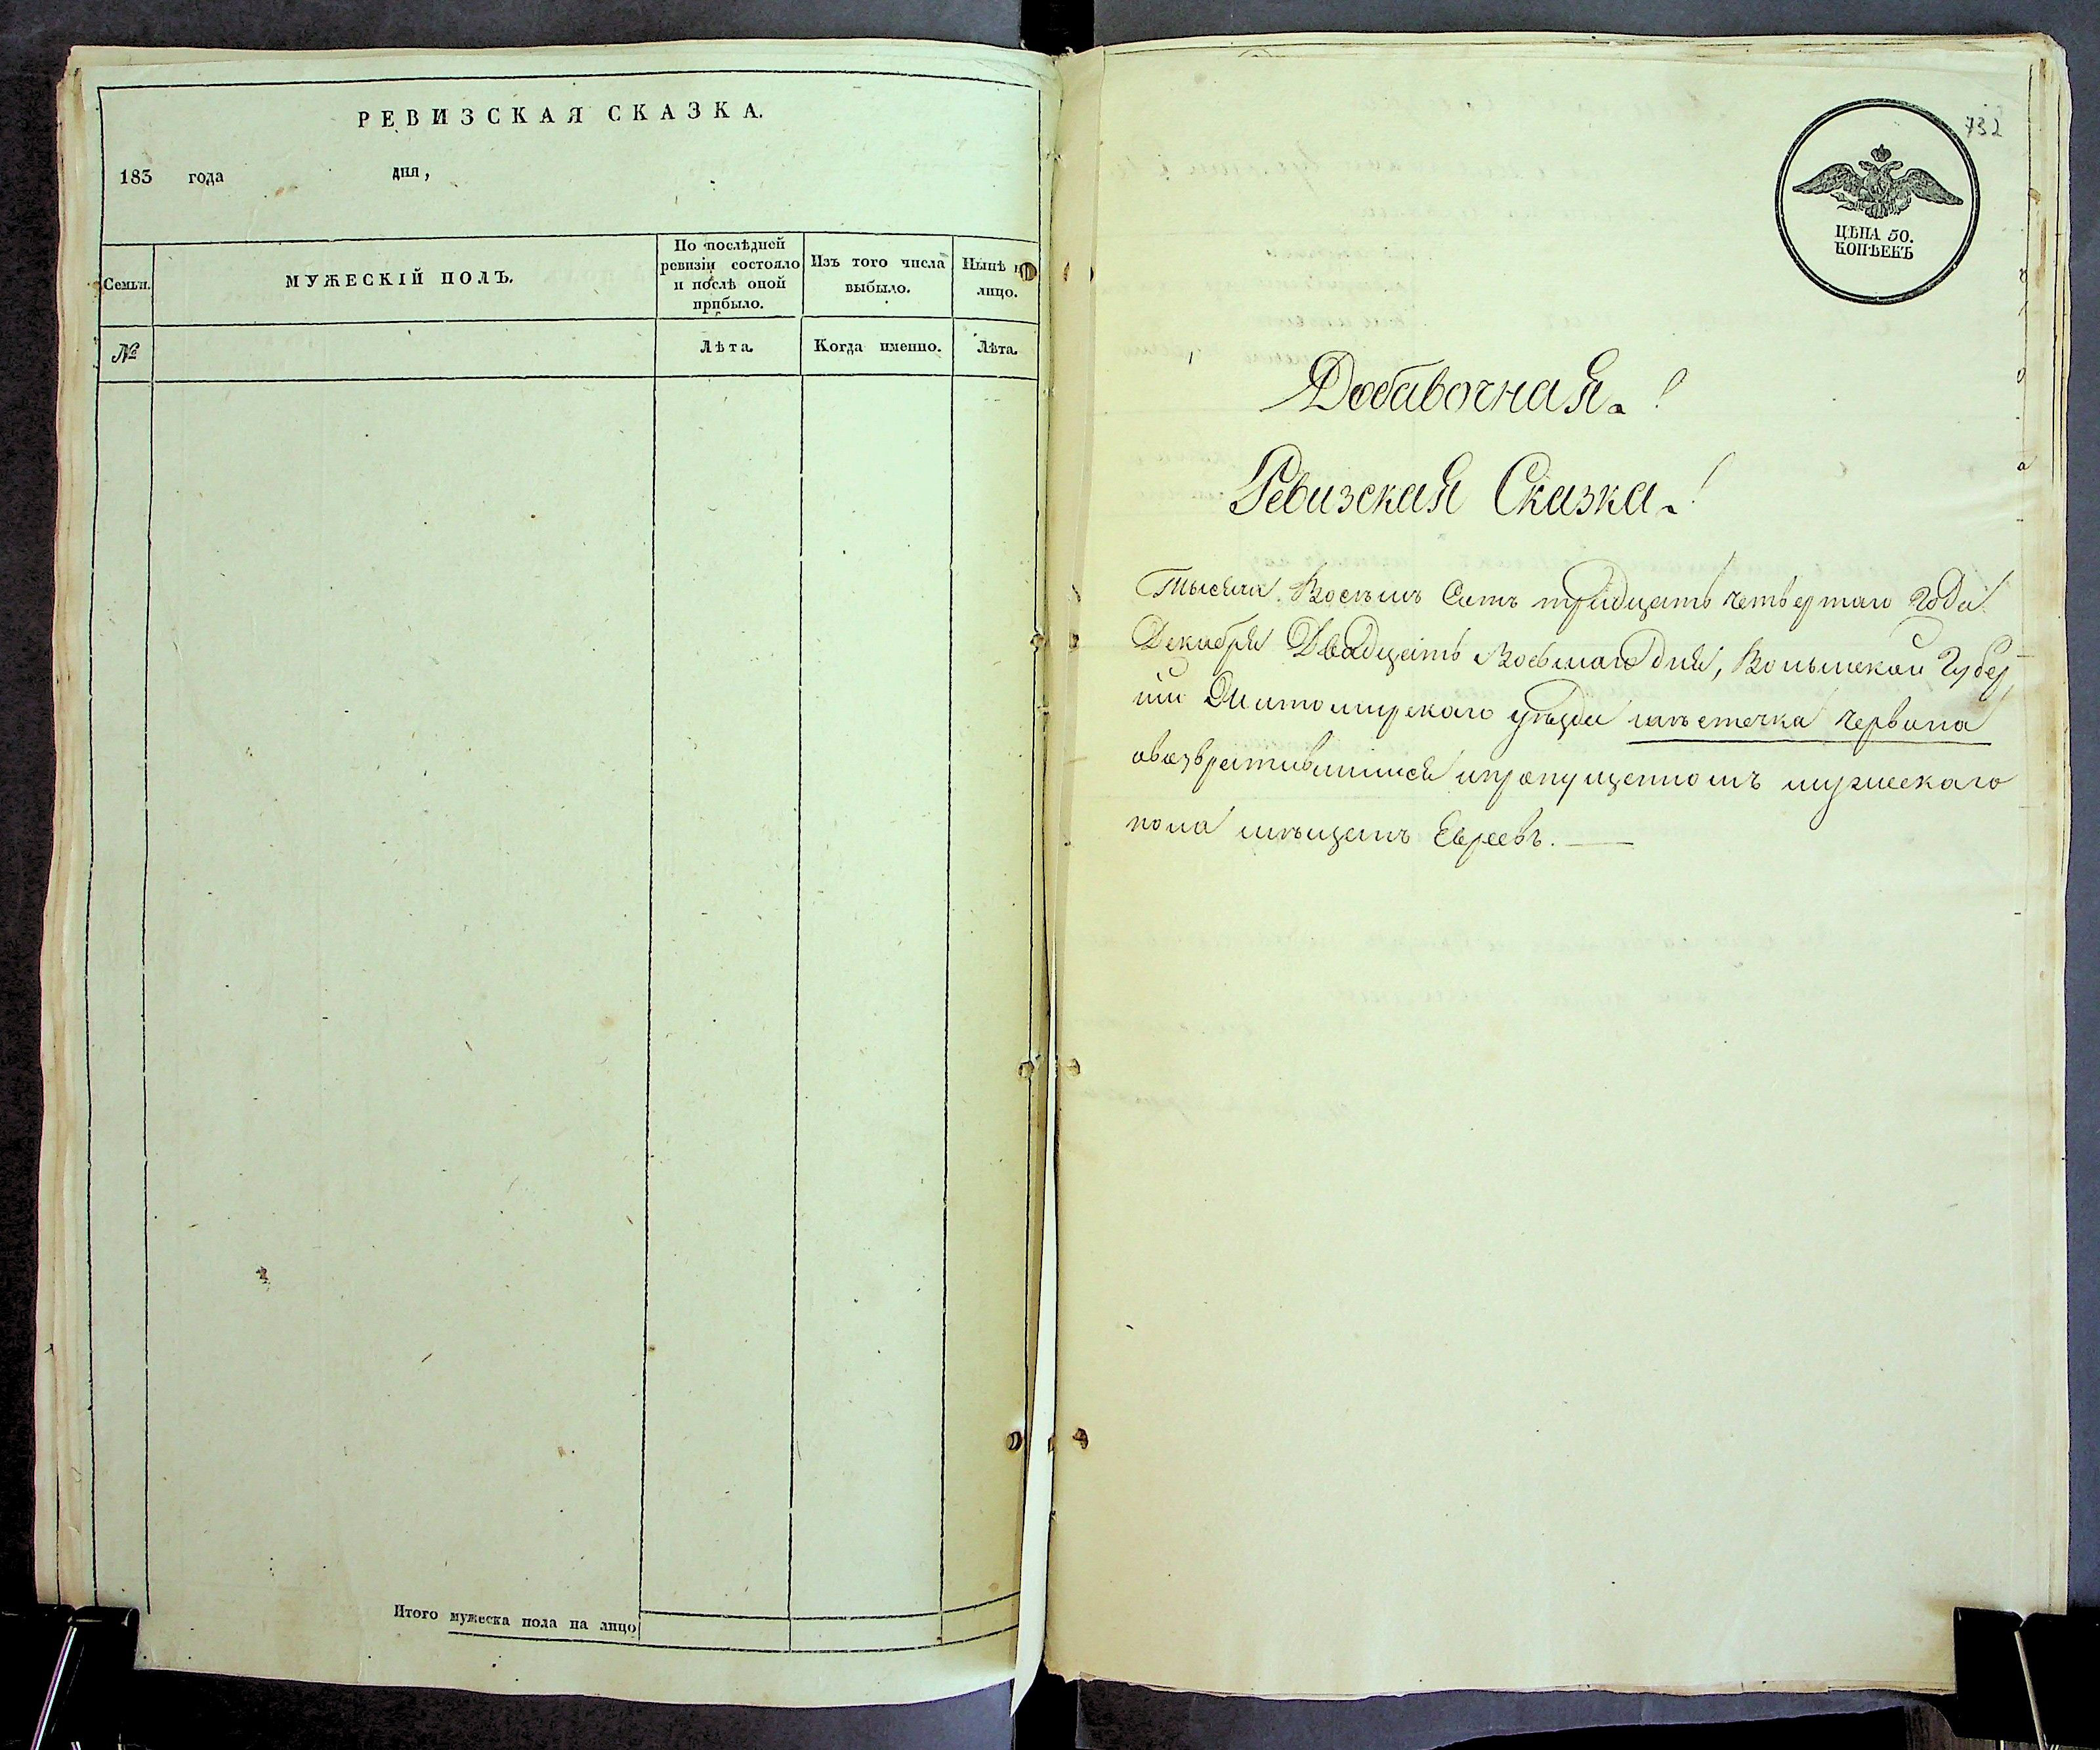 РЕВИЗСКАЯ СКАЗКА.
183 года дня,
Семьи.
МУЖЕСКІЙ ПОЛЪ.
По послѣдней
ревизіи состояло
и послѣ оной
прибыло.
Изъ того числа
выбыло.
Нынѣ
лицо.
№
Лѣта.
Когда именно.
Лѣта.
Итого мужеска пола на лицо
732
ЦѢНА 50.
КОПѢЕКЪ
Добавочная.
Ревизская Сказка.
Тысяча Восѣмъ Сотъ тридцать четвертаго Года
Декабря Двадцать Восьмаго дня, Волынской Губер
ніи Житомирскаго уѣзда мѣстечка Червона
овозвратившимся ипропущенномъ мужескаго
пола мѣщанъ Евреевъ.